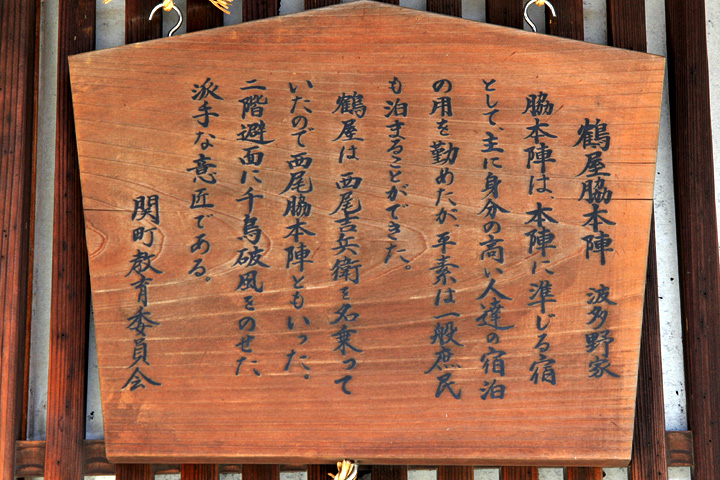 鶴屋脇本陣 波多野家
脇本陣は、本陣に準じる宿
として、主に身分の高い人達の宿泊
の用を勤めたが、平素は一般庶民
も泊まることができた。
鶴屋は西尾吉兵衛を名乗って
いたので西尾脇本陣ともいった。
二階避面に千鳥破風をのせた、
派手な意匠である。
関町教育委員会